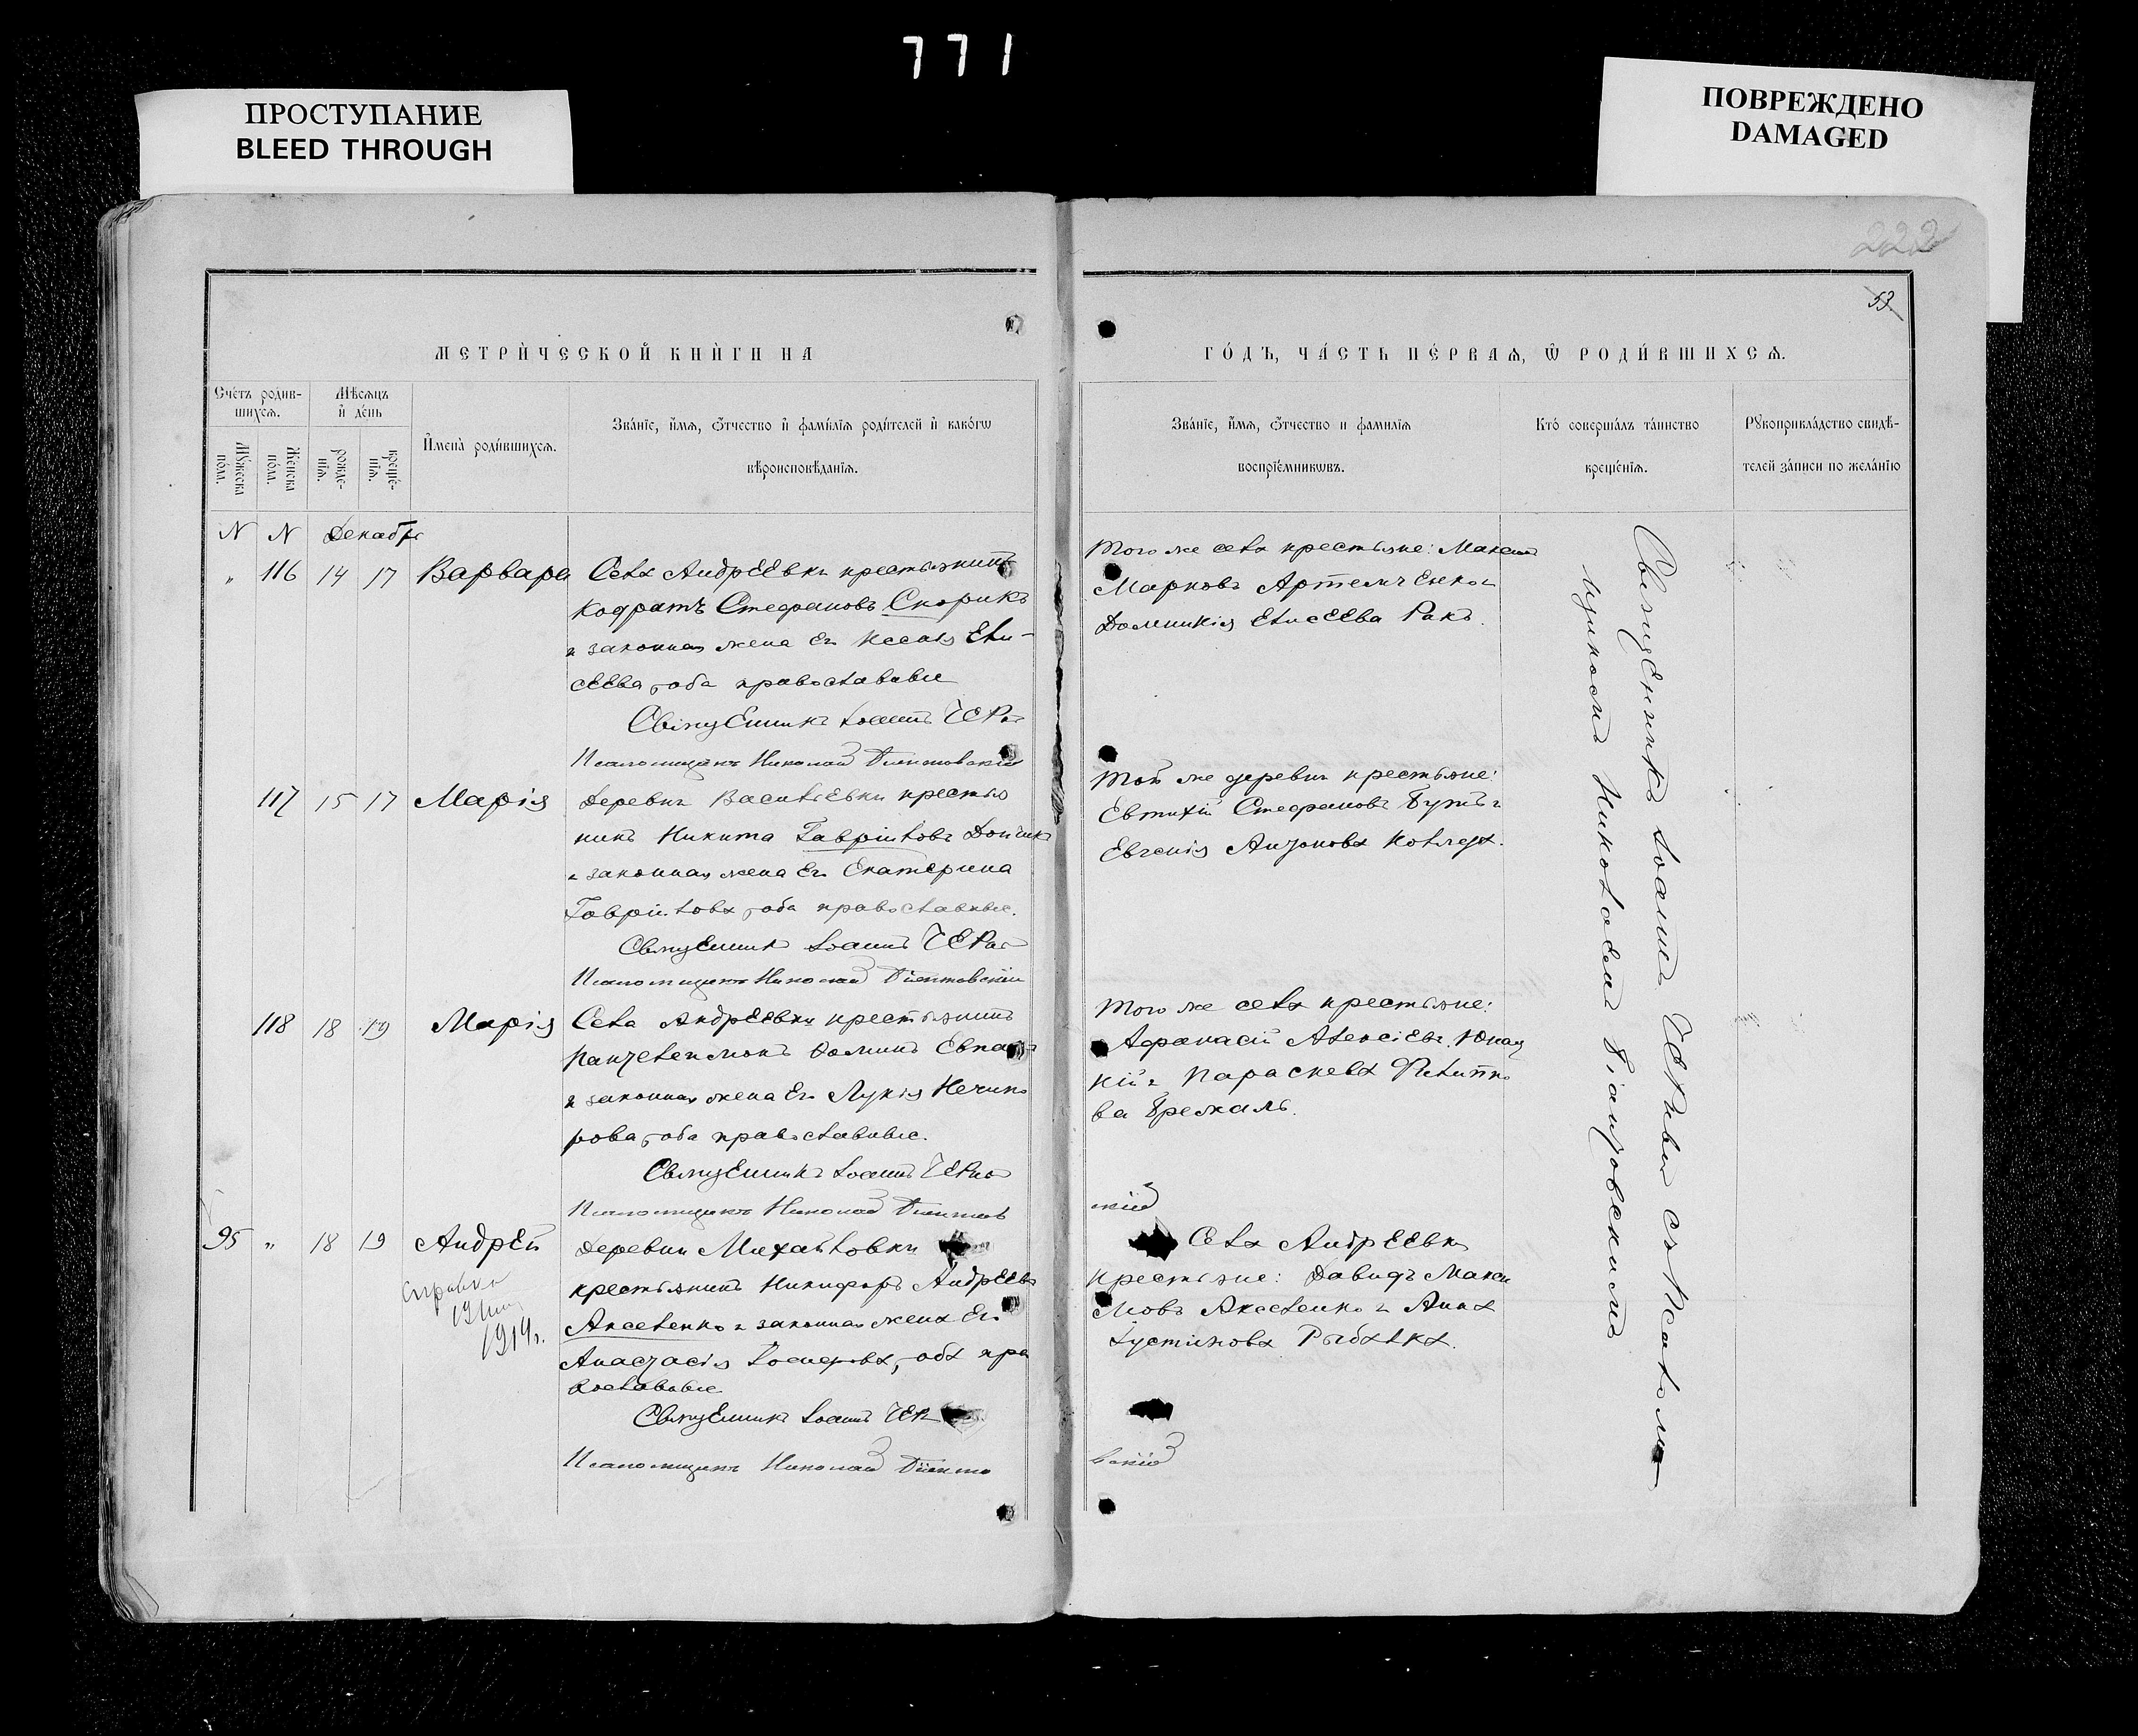 771
ПРОСТУПАНИЕ
BLEED THROUGH
ПОВРЕЖДЕНО
DAMAGED
222
53
МЕТРИ́ЧЕСКОЙ КНИ́ГИ НА
ГО́ДЪ, ЧА́СТЬ ПЕ́РВАѦ, Ѽ РОДИ́ВШИХСѦ.
Сче́тъ родив-
шихсѧ.
Мѣсѧцъ
и҆ де́нь
Му́жеска
по́ла.
Же́неска
по́ла.
рожде-
нїѧ.
креще́-
нїѧ.
И҆мена̀ роди́вшихсѧ.
Зва́нїе, и҆́мѧ, ѻ҆́тчество и҆ фами́лїѧ роди́телей и҆ како́гѡ
вѣроисповѣ́данїѧ.
Зва́нїе, и҆́мѧ, ѻ҆́тчество и фамилїѧ
воспрїе́мникѡвъ.
Кто́ соверша́лъ та́инство
креще́нїѧ.
Рꙋкоприкла́дство свидѣ́-
телей за́писи по жела́нїю
N N Декабрь
" 116 14 17 Варвара
Села Андреевки крестьянинъ
Кодратъ Стефановъ Скорикъ
и законная жена его Ксенія Ели-
сеева, оба православные
Священникъ Іоаннъ
Псаломщикъ Николай
Того же села крестьяне: Максимъ
Марковъ Артемченко и
Домникія Елисеева Ракъ.
117 15 17 Марія
Деревни Васильевки крестья
нинъ Никита Гавріиловъ
и законная жена его Екатерина
Гавріилова, оба православные.
Священникъ Іоаннъ
Псаломщикъ Николай
Той же деревни крестьяне:
Евтихій Стефановъ и
Евгенія Антонова
118 18 19 Марія
Села Андреевки крестьянинъ
Пантелеимонъ Фоминъ
и законная жена его Лукія Некифо
рова, оба православные.
Священникъ Іоаннъ
Псаломщикъ Николай
Того же села крестьяне:
Афанасій Алексіевъ
кій и Параскева Филиппо
ва
скій
95 " 18 19 Андрей
Справка
1914 г.
Деревни Михайловки
крестьянинъ Никифоръ Андреевъ
Акселенко и законная жена его
Анастасія Іосифова, оба пра
вославные
Священникъ Іоаннъ
Псаломщикъ Николай
Села Андреевки
крестьяне: Давидъ Макси
мовъ Акселенко и Анна
Іустинова Рыбалка.
вскій
Священникъ Іоаннъ съ Псалом
щикомъ Николаемъ